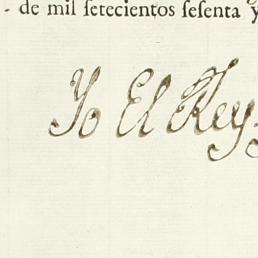 - de mil ſetecientos ſeſenta y
Yo El Rey.